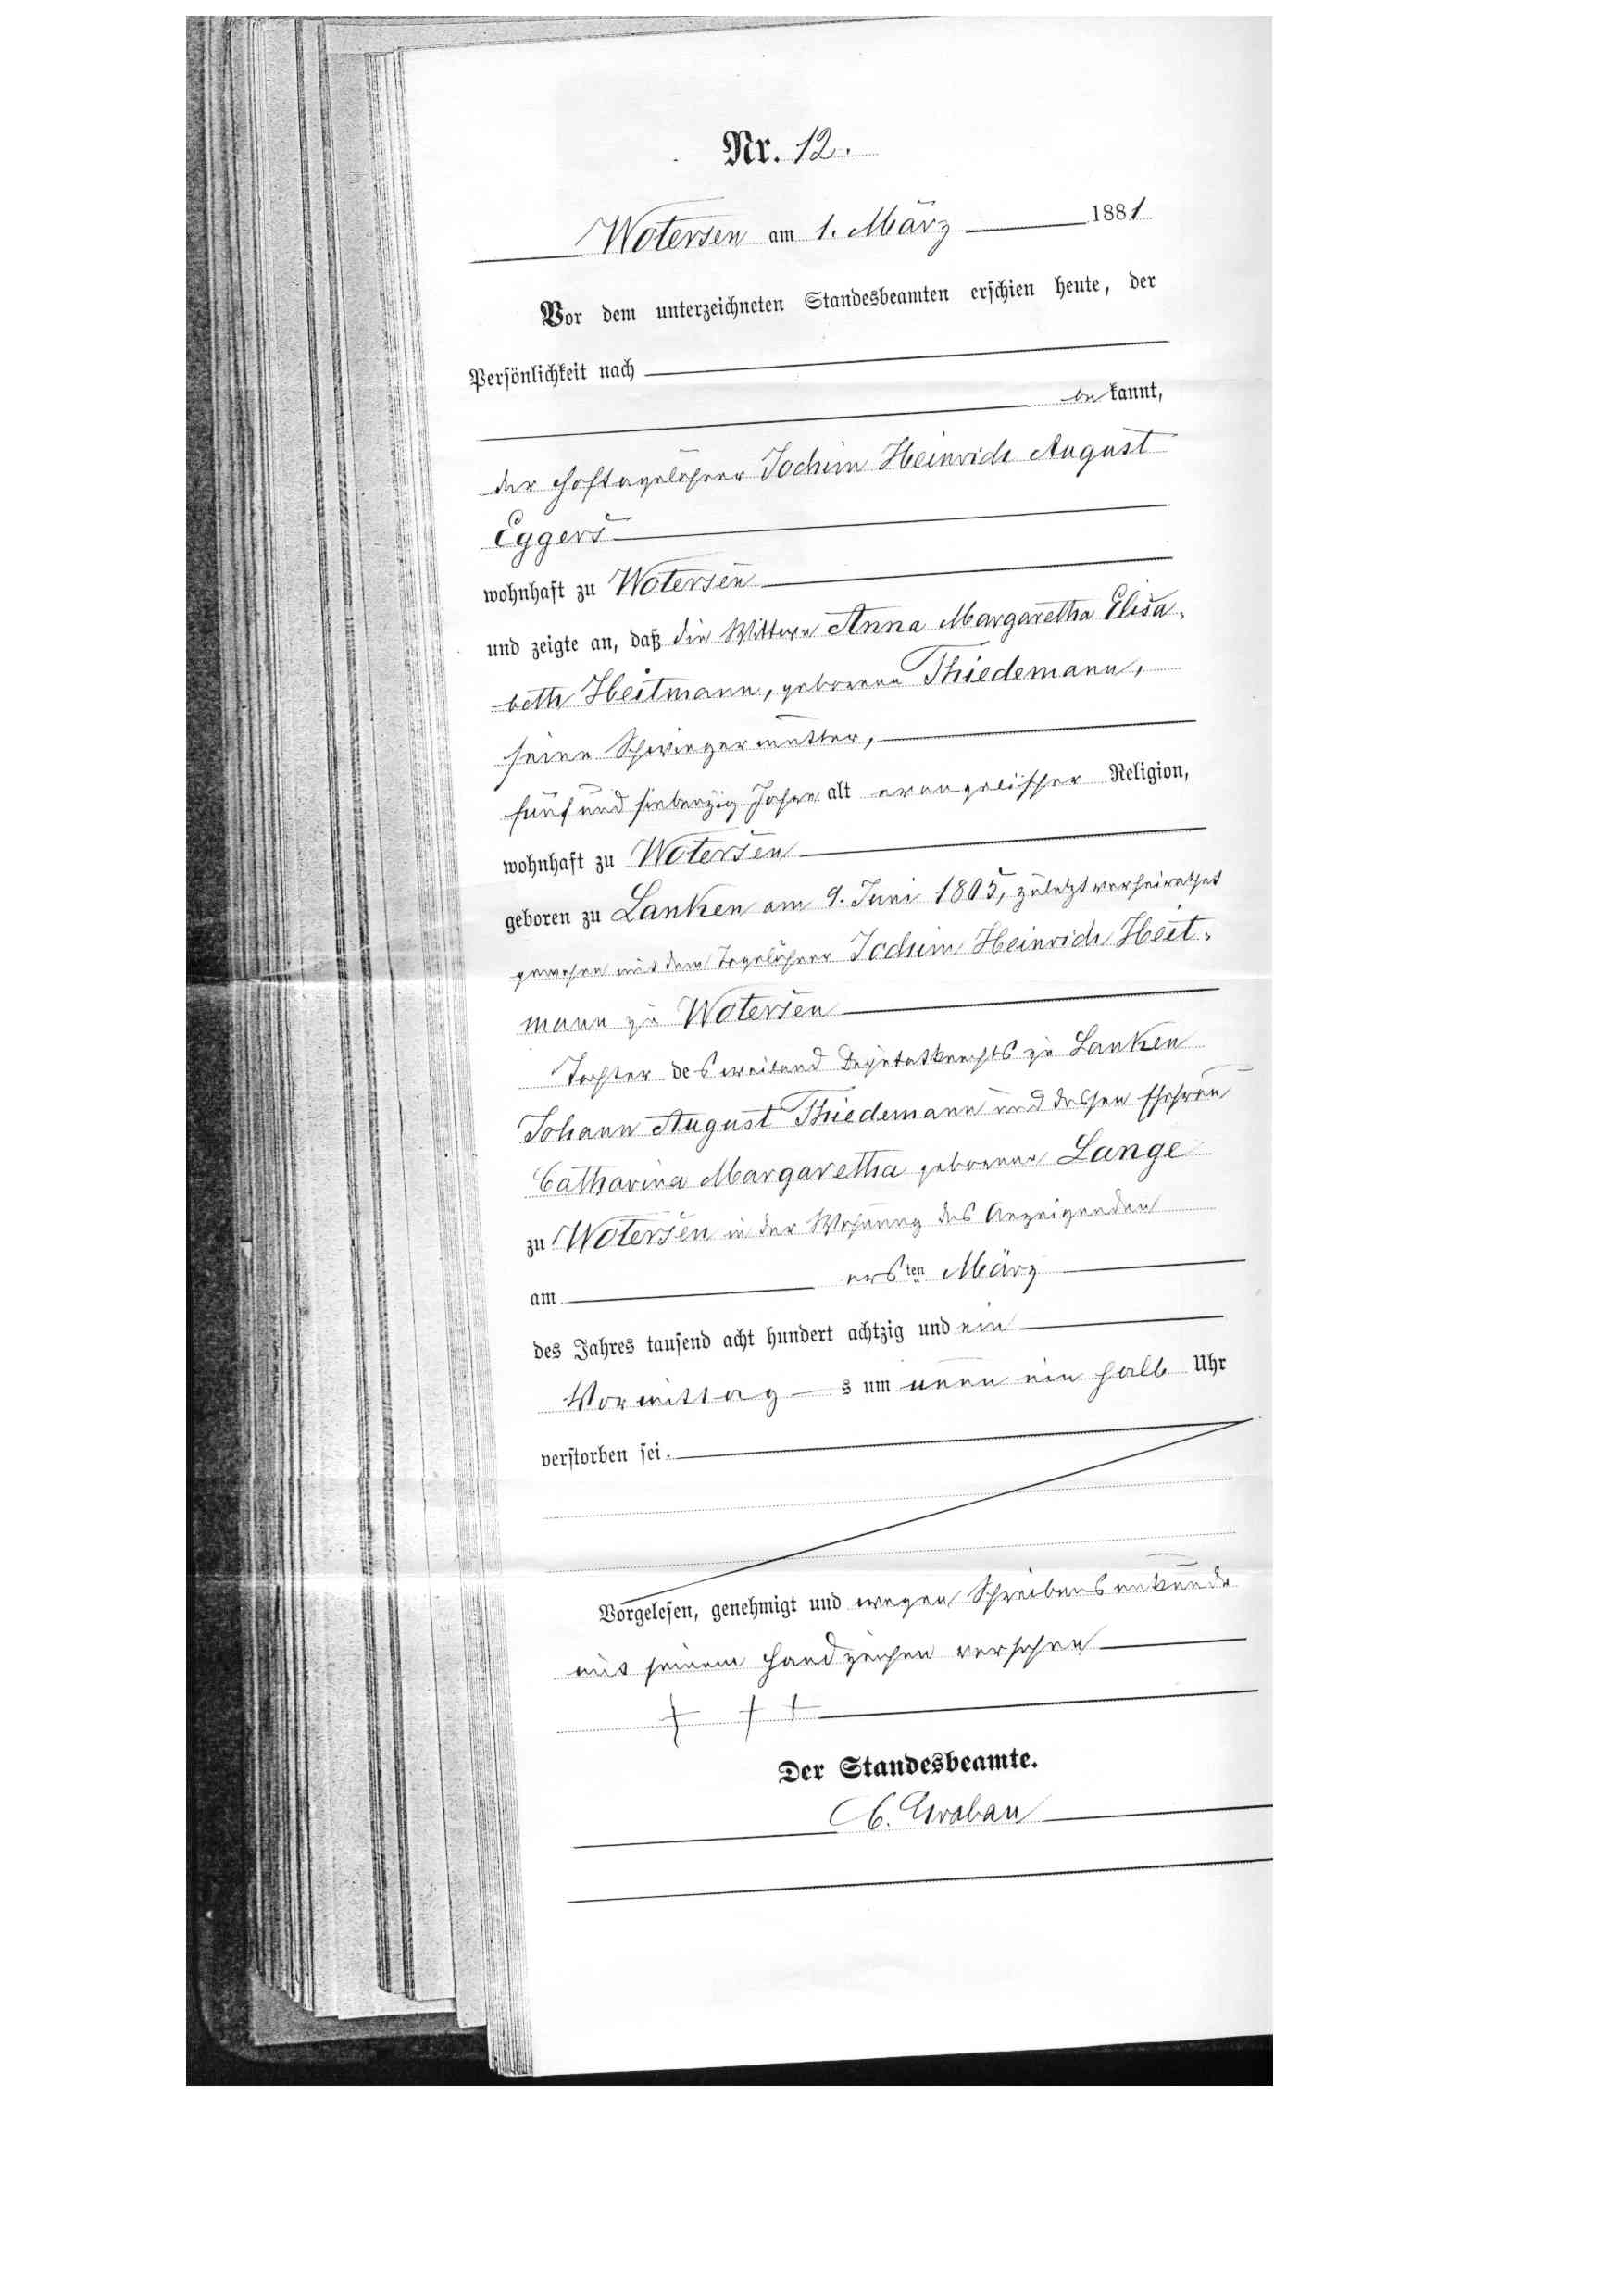 Nr. 12.
Wotersen am 1. März 1881
Vor dem unterzeichneten Standesbeamten erschien heute, der
Persönlichkeit nach
bekannt,
der Hoftagelöhner Jochim Heinrich August
Eggers
wohnhaft zu Wotersen
und zeigte an, daß die Wittwe Anna Margaretha Elisa-
beth Heitmann, geborene Thiedemann,
seine Schwiegermutter,
fünf und siebenzig Jahre alt evangelischer Religion,
wohnhaft zu Wotersen
geboren zu Lanken am 9. Juni 1805, zuletzt verheirathet
gewesen mit dem Tagelöhner Jochim Heinrich Heit-
mann zu Wotersen
Tochter des weiland Deputatknechts zu Lanken
Johann August Thiedemann und dessen Ehefrau
Catharina Margaretha geborene Lange
zu Wotersen in der Wohnung des Anzeigenden
am ersten März
des Jahres tausend acht hundert achtzig und ein
Vormittags um neun ein halb Uhr
verstorben sei.
Vorgelesen, genehmigt und wegen Schreibensunkunde
mit seinem Handzeichen versehen
+ + +
Der Standesbeamte.
C. Graban